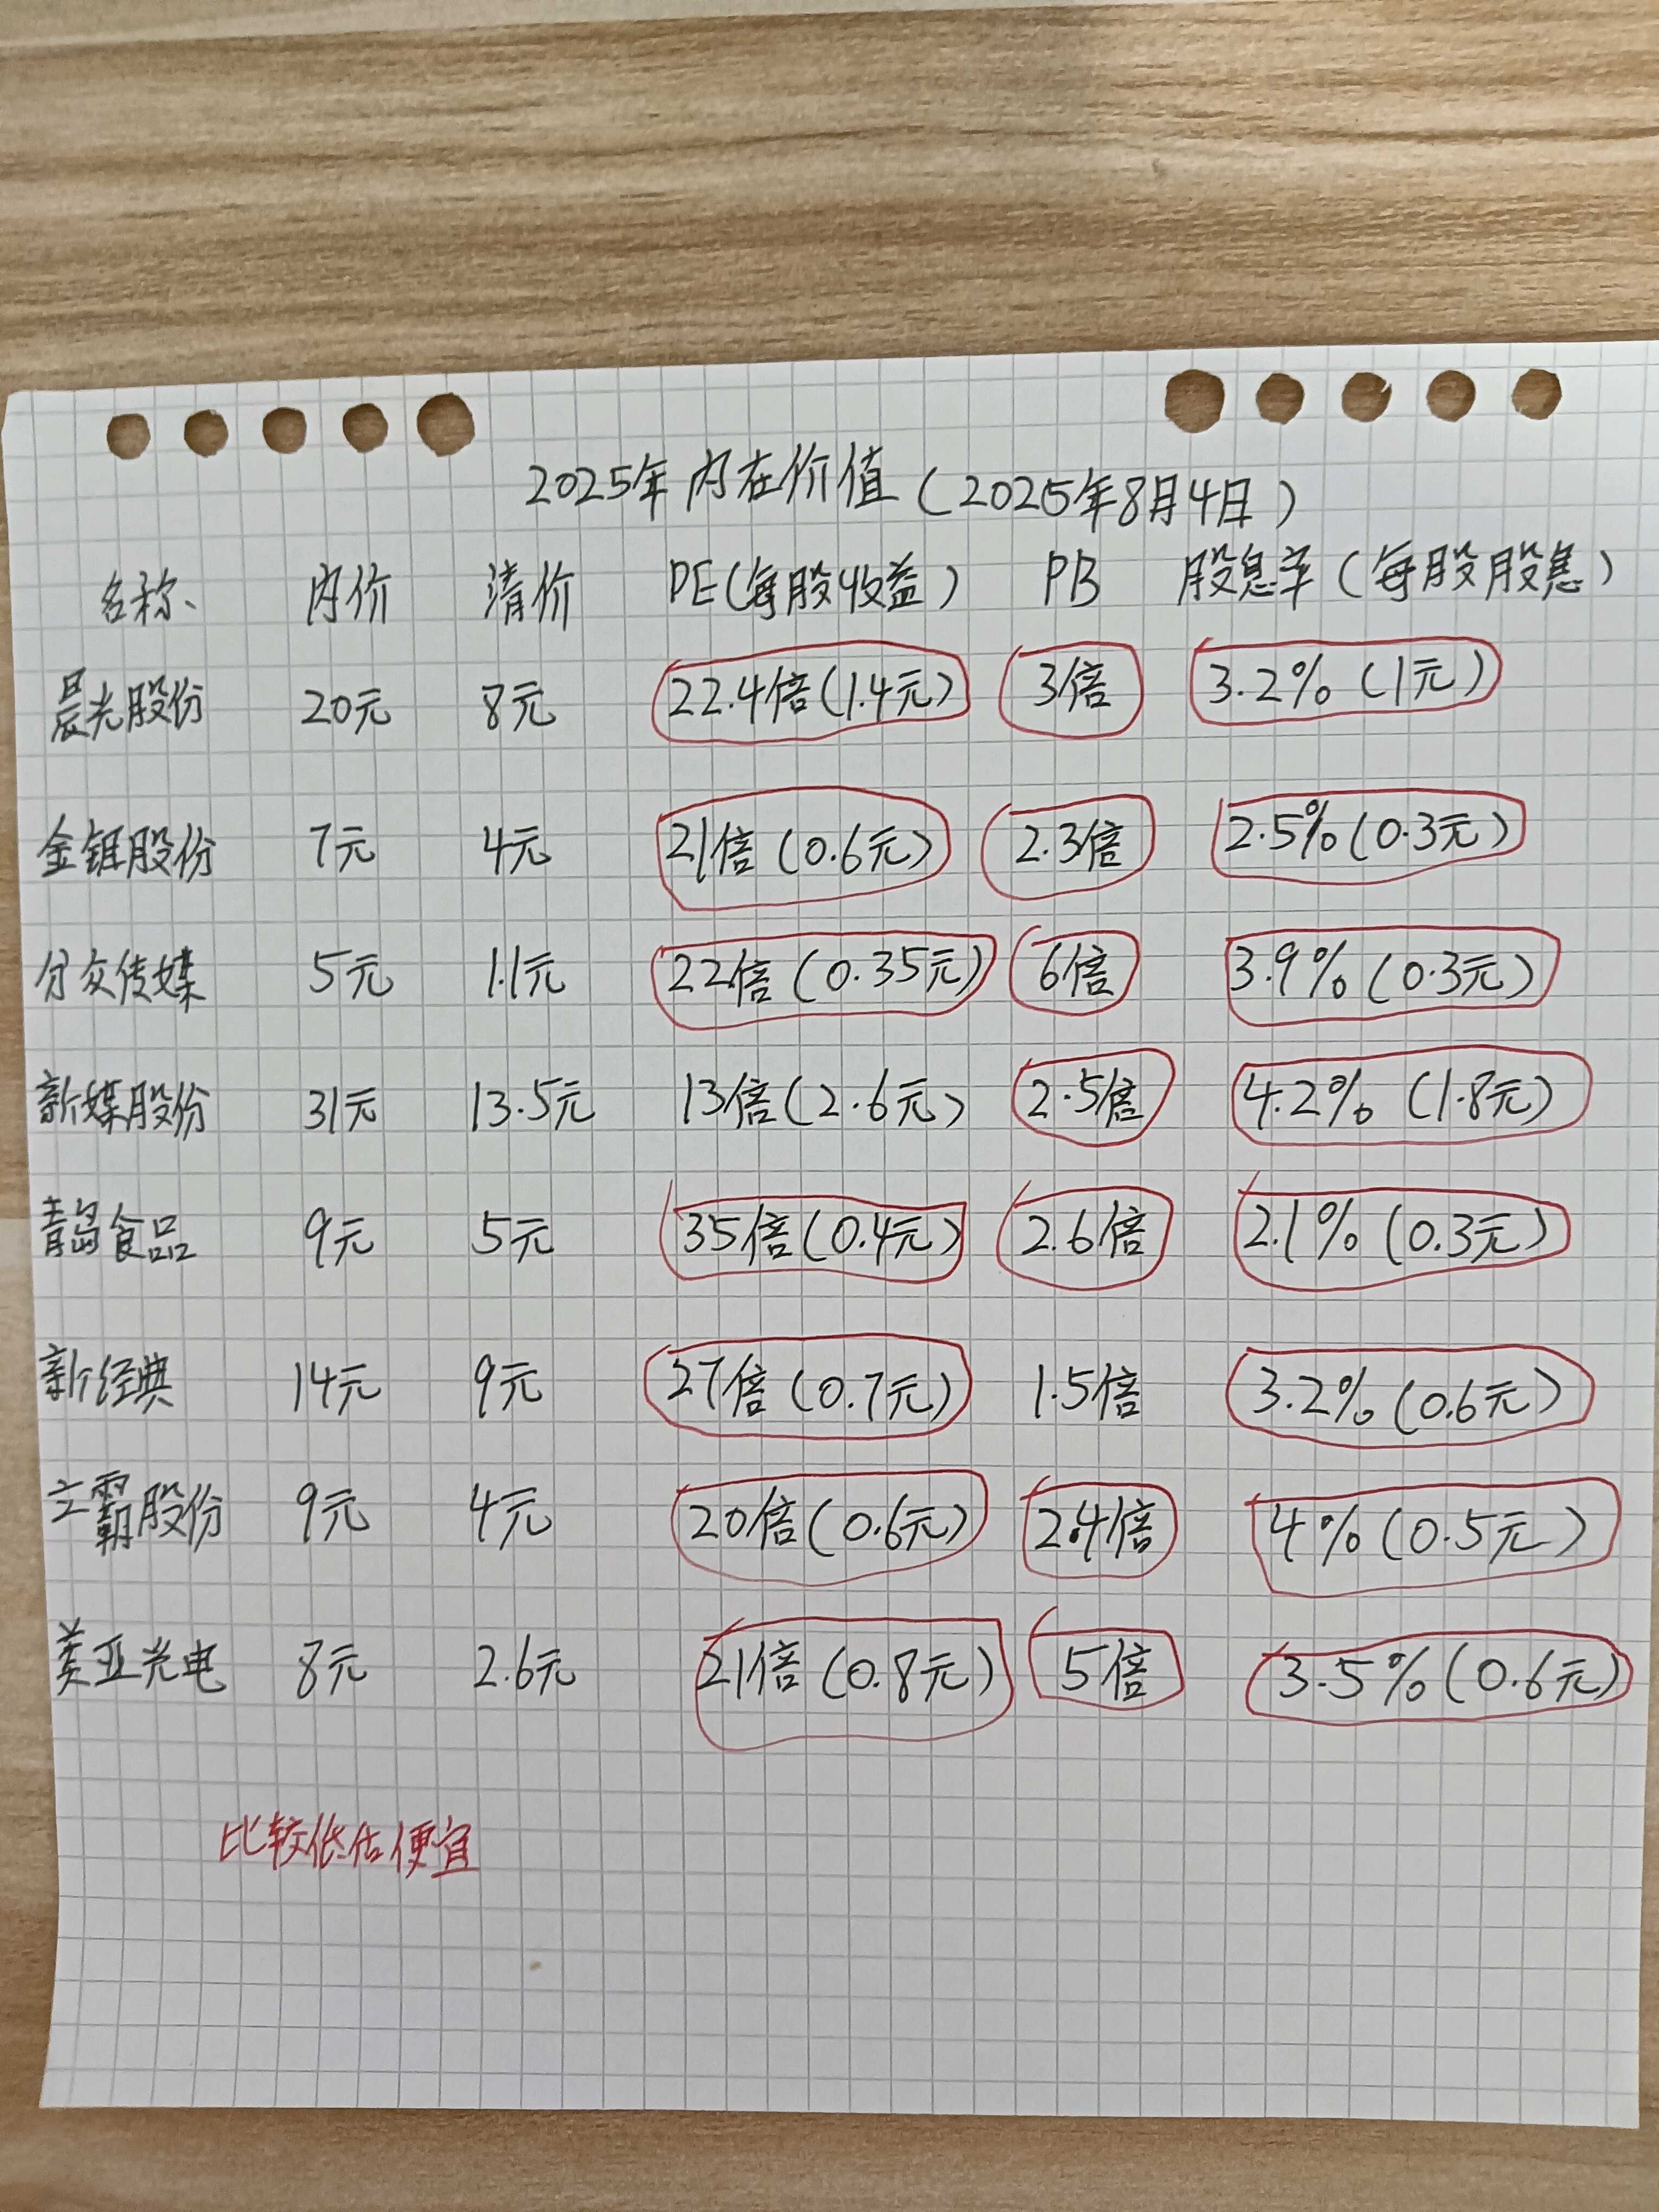 2025年内在价值(2025年8月4日)
名称、 内价 清价 PE(每股收益) PB 股息率(每股股息)
晨光股份 20元 8元 22.4倍(1.4元) 3倍 3.2%(1元)
金钼股份 7元 4元 21倍(0.6元) 2.3倍 2.5%(0.3元)
分众传媒 5元 1.1元 22倍(0.35元) 6倍 3.9%(0.3元)
新媒股份 31元 13.5元 13倍(2.6元) 2.5倍 4.2%(1.8元)
青岛食品 9元 5元 35倍(0.4元) 2.6倍 2.1%(0.3元)
新经典 14元 9元 27倍(0.7元) 1.5倍 3.2%(0.6元)
立霸股份 9元 4元 20倍(0.6元) 2.4倍 4%(0.5元)
美亚光电 8元 2.6元 21倍(0.8元) 5倍 3.5%(0.6元)
比较低估便宜